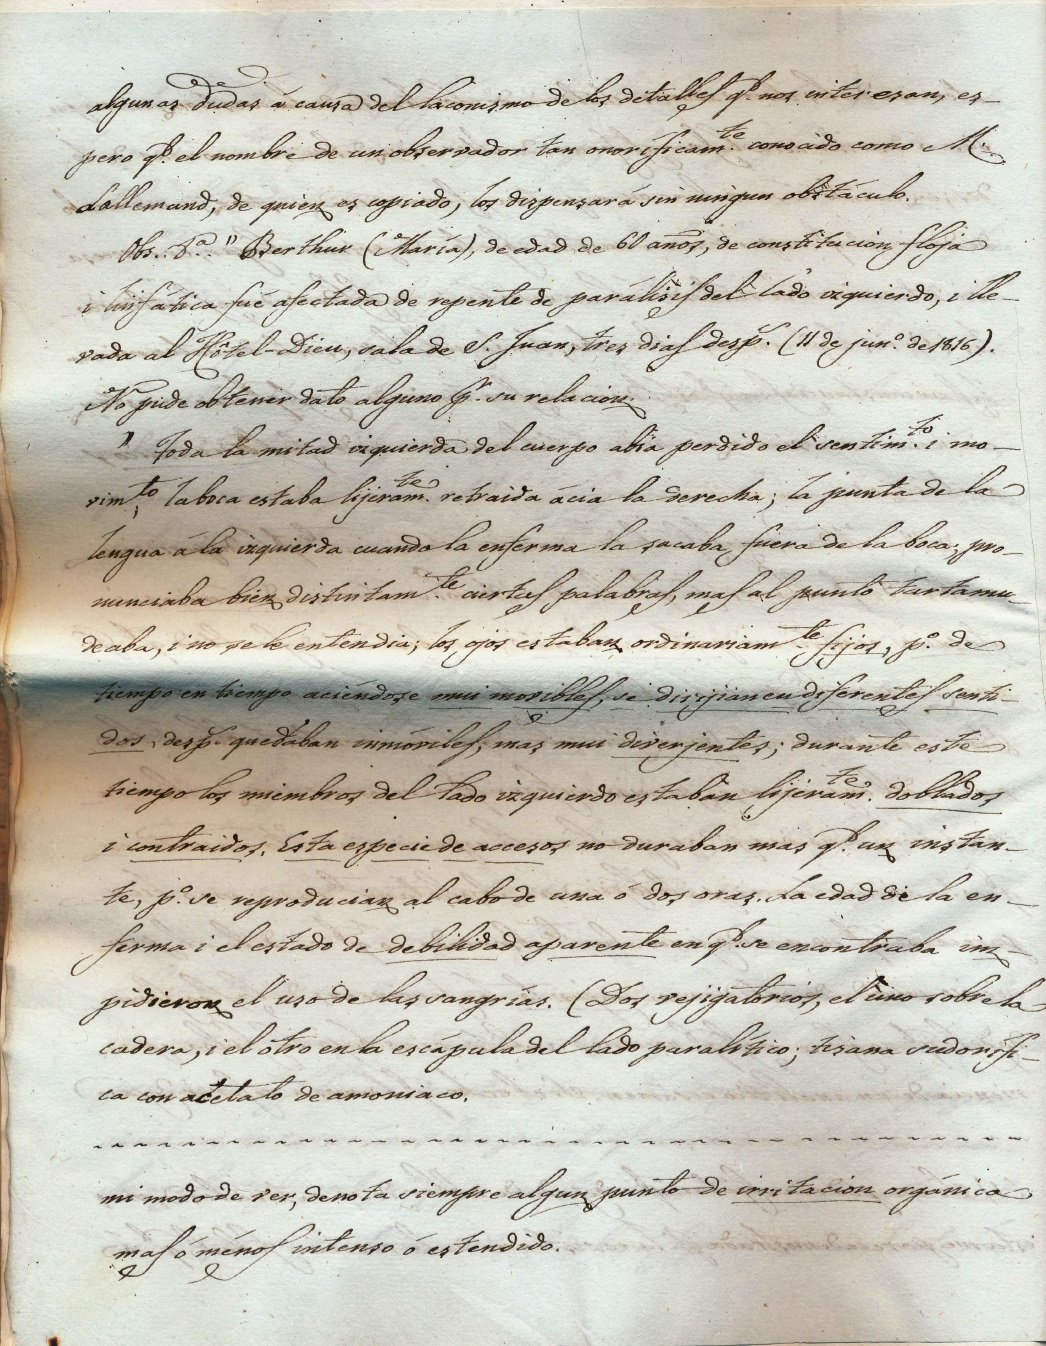 algunas dudas á causa del laconismo de los detalles q.e nos interesan, es-
pero q.e el nombre de un observador tan onorificam.te conocido como M.
Lallemand, de quien es copiado, los dispensará sin ningun obstáculo.
Obs. 8.a " Berthur (María), de edad de 60 años, de constitucion floja
i linfática fué afectada de repente de parálisis del lado izquierdo, i lle-
vada al Hôtel-Dieu, sala de S. Juan, tres dias desp.s (11 de jun.o de 1816).
No pude obtener dato alguno p.r su relacion.
" Toda la mitad izquierda del cuerpo abia perdido el sentim.to i mo-
vim.to; la boca estaba lijeram.te retraida ácia la derecha; la punta de la
lengua á la izquierda cuando la enferma la sacaba fuera de la boca; pro-
nunciaba bien distintam.te ciertas palabras, mas al punto tartamu-
deaba, i no se le entendia; los ojos estaban ordinariam.te fijos, p.o de
tiempo en tiempo aciéndose mui movibles, se dirijian en diferentes senti-
dos, desp.s quedaban inmóviles, mas mui diverjentes; durante este
tiempo los miembros del lado izquierdo estaban lijeram.te doblados
i contraidos. Esta especie de accesos no duraban mas q.e un instan-
te, p.o se reproducian al cabo de una ó dos oras. La edad de la en-
ferma i el estado de debilidad aparente en q.e se encontraba im-
pidieron el uso de las sangrías. (Dos vejigatorios, el uno sobre la
cadera, i el otro en la escápula del lado paralítico; tisana sudorífi-
ca con acetato de amoniaco.
mi modo de ver, denota siempre algun punto de irritacion orgánica
mas ó ménos intenso ó estendido.